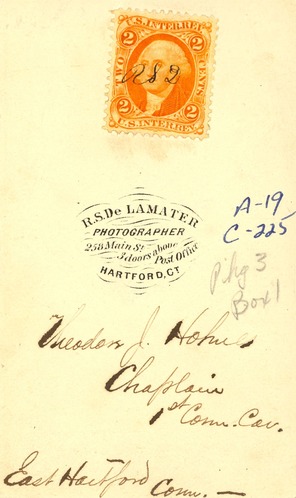 U.S. INTER. REV.
2 2
TWO CENTS
RSD
2 2
U.S. INTER. REV.
R.S. De LAMATER
PHOTOGRAPHER
258 Main St
3 doors above
Post Office
HARTFORD, CT
A-19
C-225
Pkg 3
Box 1
Theodore J. Holmes
Chaplain
1st Conn. Cav.
East Hartford
Conn. —